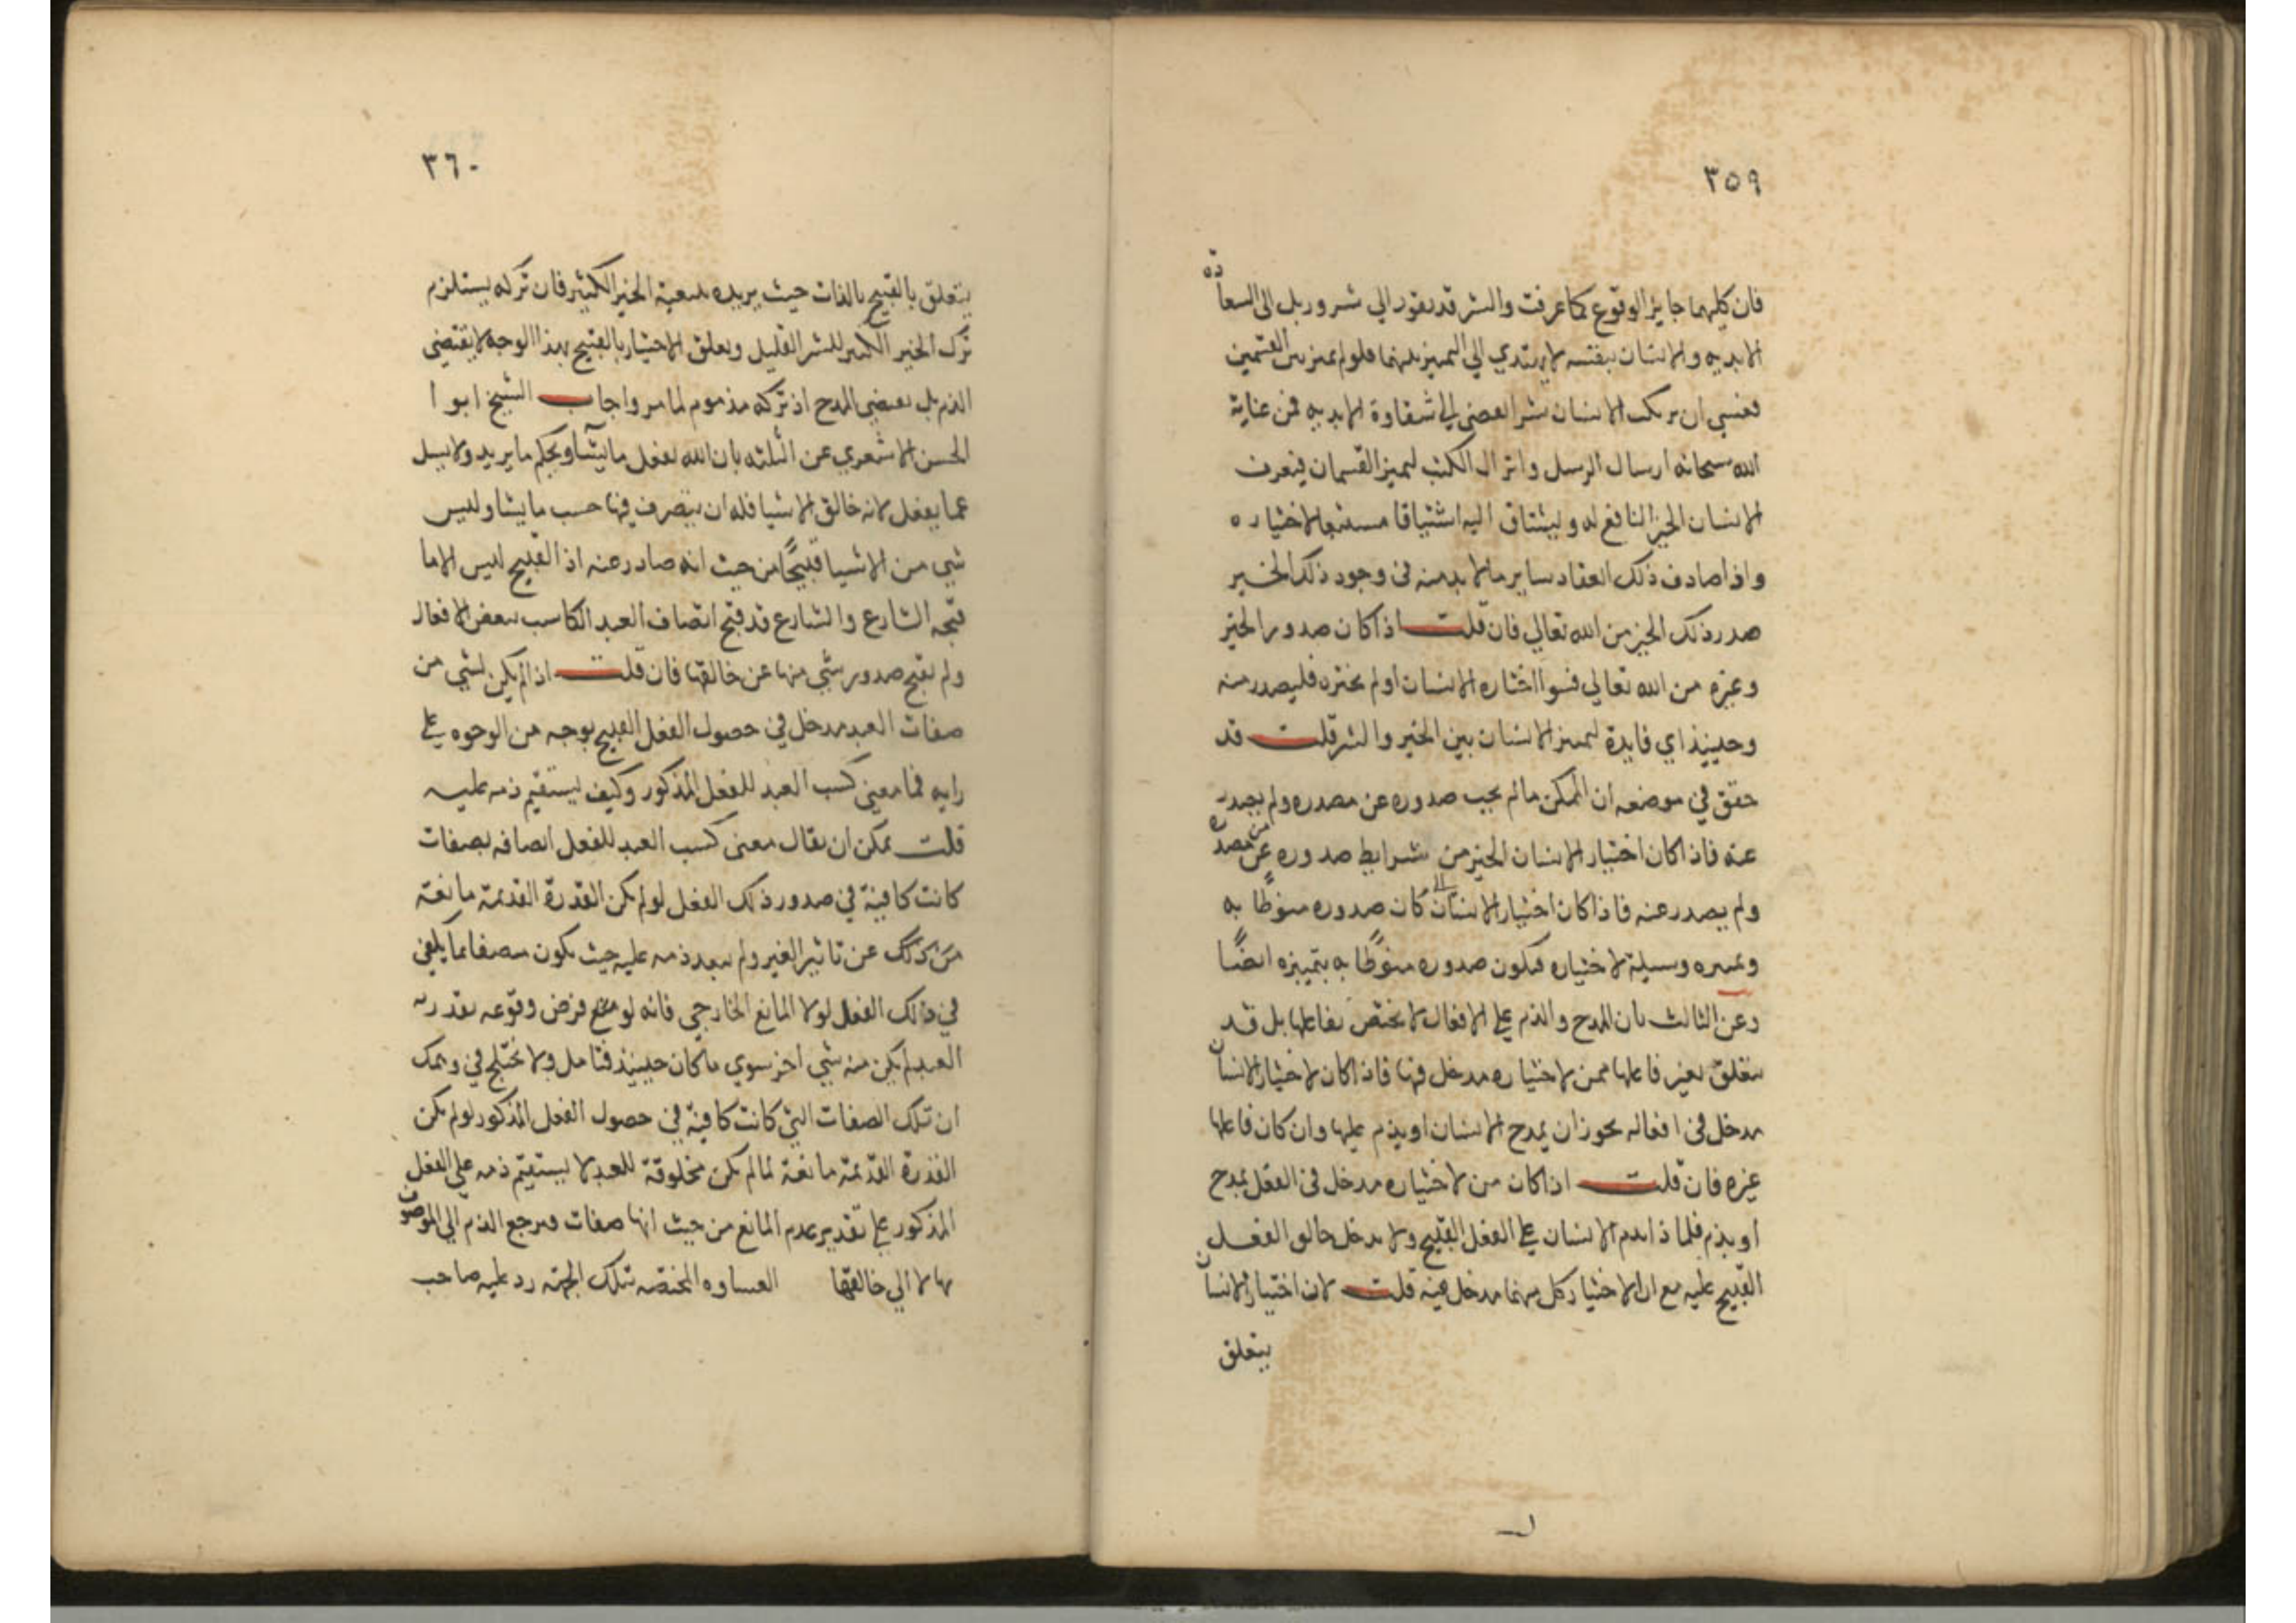 ٣٥٩
فان كليهما جايز الوقوع كما عرفت والشر قد يقود الي شرور بل الى السعادة
الابديه والانسان بنفسه لا يهتدي الي التميز بينهما فلو لم يميز بين القسمين
فعسي ان يرتكب الانسان شرا يفضي الي شقاوة الابديه فمن عناية
الله سبحانه ارسال الرسل وانزال الكتب ليميز القسمان فيعرف
الانسان الخير النافع له ويشتاق اليه اشتياقا مستتبعا لاختياره
واذا صادف ذلك انعقاد ساير ما لا بد منه في وجود ذلك الخير
صدر ذلك الخير من الله تعالي فان قلت اذا كان صدور الخير
وغيره من الله تعالي فسوا اختاره الانسان او لم يختره فليصدر منه
وحينيذ اي فايدة لتميز الانسان بين الخير والشر قلت قد
حقق في موضعه ان الممكن ما لم يجب صدوره عن مصدره ولم يجب
عنه فاذا كان اختيار الانسان الخير من شرايط صدوره عن مصدره
ولم يصدر عنه فاذا كان اختيار الانسان كان صدوره منوطا به
وتميزه وسيلة لاختياره فيكون صدوره منوطا به بتميزه ايضا
وعن الثالث بان المدح والذم علي الافعال لا يختص بفاعلها بل قد
يتعلق بغير فاعلها ممن لاختياره مدخل فيها فاذا كان لاختيار الانسان
مدخل في افعاله يجوز ان يمدح الانسان او يذم عليها وان كان فاعلها
غيره فان قلت اذا كان من لاختياره مدخل في الفعل يمدح
او يذم فلماذا يذم الانسان علي الفعل القبيح ولا يدخل خالق الفعل
القبيح عليه مع ان لاختيار كل منهما مدخل فيه قلت لان اختيار الانسان
يتعلق
٣٦٠
يتعلق بالقبيح بالذات حيث يريده بتبعية الخير الكثير فان تركه يستلزم
ترك الخير الكثير للشر القليل وتعلق الاختيار بالقبيح بهذا الوجه لا يقتضي
الذم بل يقتضي المدح اذ تركه مذموم لما مر واجاب الشيخ ابو ا
الحسن الاشعري عن الثلثه بان الله يفعل ما يشآ ويحكم ما يريد ولا يسل
عما يفعل لانه خالق الاشيا فله ان يتصرف فيها حسب ما يشا وليس
شي من الاشيا قبيحًا من حيث انه صادر عنه اذ القبيح ليس الا ما
قبحه الشارع والشارع قد قبح اتصاف العبد الكاسب ببعض الافعال
ولم يقبح صدور شي منها عن خالقها فان قلت اذا لم يكن لشي من
صفات العبد مدخل في حصول الفعل القبيح بوجه من الوجوه علي
رايه فما معني كسب العبد للفعل المذكور وكيف يستقيم ذمه عليه
قلت يمكن ان يقال معنى كسب العبد للفعل اتصافه بصفات
كانت كافية في صدور ذلك الفعل لو لم يكن القدرة القديمة مانعة
من ذلك عن تاثير الغير ولم يبعد ذمه عليه حيث يكون متصفا بما يكفي
في ذلك الفعل لولا المانع الخارجي فانه لو فرض وقوعه بقدرته
العبد لم يكن منه شي اخر سوي ما كان حينيذ فتامل ولا يختلج في وهمك
ان تلك الصفات التي كانت كافية في حصول الفعل المذكور لو لم يكن
القدرة القديمة مانعة لما لم يكن مخلوقة للعبد لا يستقيم ذمه علي الفعل
المذكور علي تقدير عدم المانع من حيث انها صفات فيرجع الذم الي الموصوف
بها لا الي خالقها المختصه بتلك الجهة رد عليه صاحب